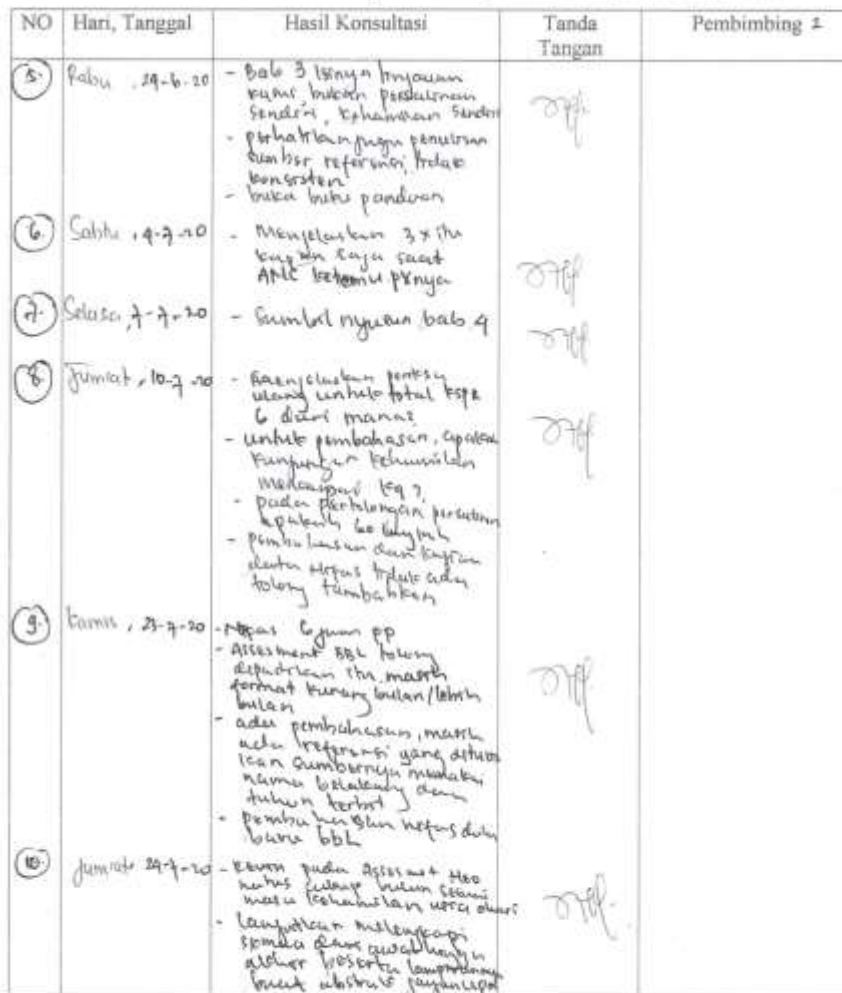 NO Hari, Tanggal Hasil Konsultasi Tanda Tangan Pembimbing 2
5. Rabu, 24-6-20 - Bab 3 isinya tinjauan
kasus, bukan persalinan
sendiri, kehamilan sendiri
- perhatikan juga penulisan
sumber referensi, tidak
konsisten
- buka buku panduan
6. Sabtu, 4-7-20 - Menjelaskan 3x itu
kajian saja saat
ANC ketemu pxnya
7. Selasa, 7-7-20 - bab 4
8. Jumat, 10-7-20 - 
ulang untuk total KSPR
6 dari mana?
- untuk pembahasan, apakah
kunjungan kehamilan
mencapai K4?
- pada pertolongan persalinan
apakah 60 langkah
- pembahasan dan kajian
data nifas tidak ada
tolong tambahkan
9. Kamis, 23-7-20 - Nifas 6 jam pp
- Assesment BBL tolong
itu masih
format kurang bulan/lebih
bulan
- ada pembahasan, masih
ada referensi yang
sumbernya memakai
nama belakang dan
tahun terbit
- pembahasan nifas dulu
baru bbl
10. Jumat 24-7-20 - pada Assesment
cukup bulan sesuai
masa kehamilan
- lanjutkan melengkapi
semua dari awal hingga
akhir beserta lampirannya
buat abstrak